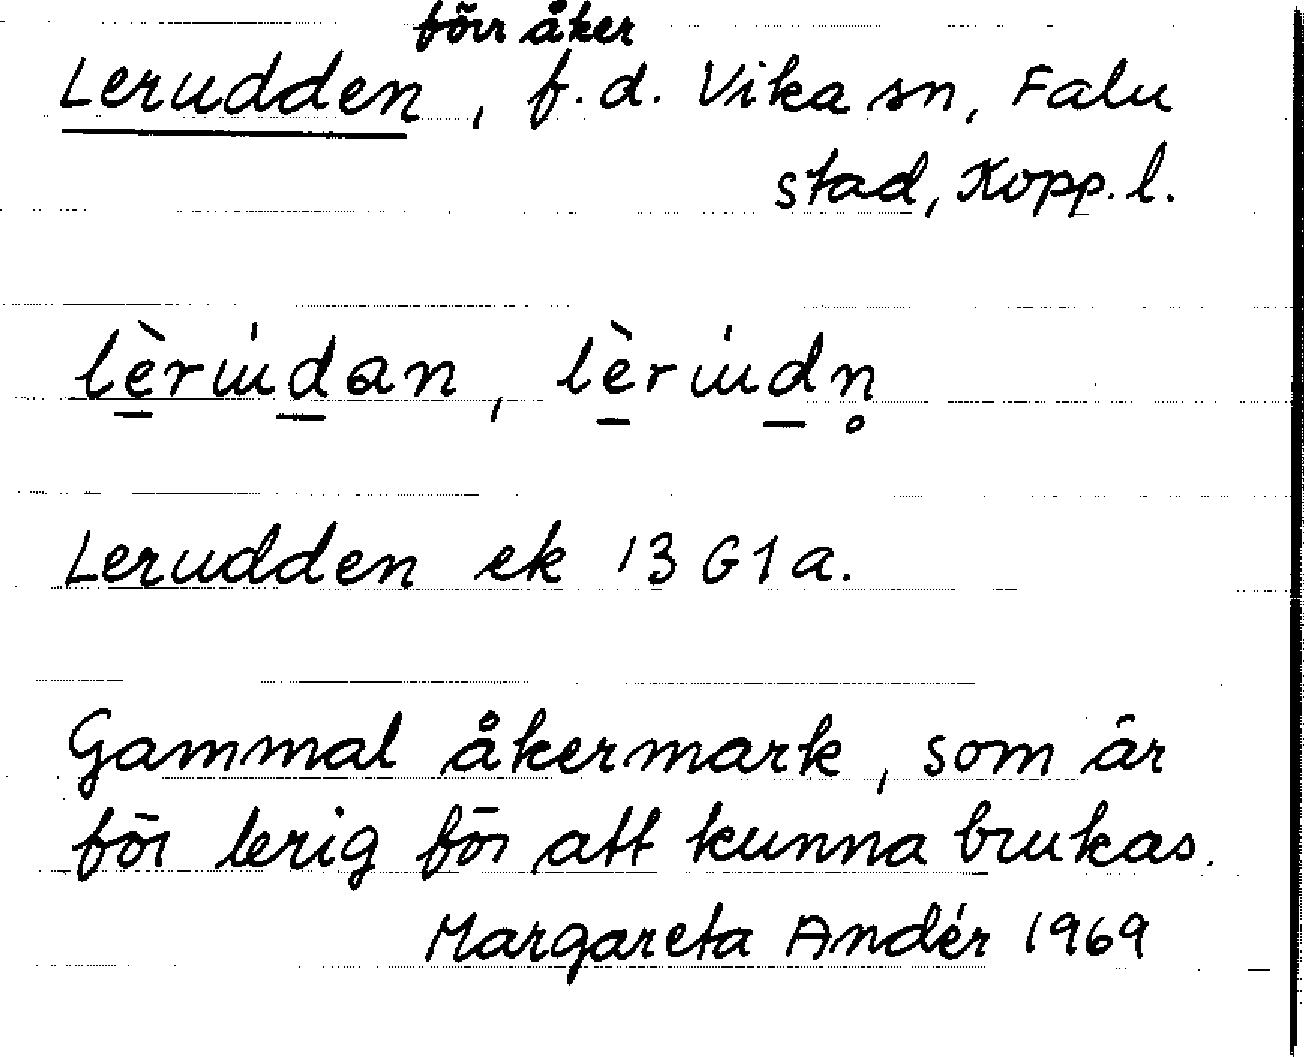 förr åker
Lerudden, f.d. Vika sn, Falu
stad, Kopp. l.
lèru̍dan, lèru̍dn̥
Lerudden ek 13 G1a.
Gammal åkermark, som är
för lerig för att kunna brukas.
Margareta Andér 1969